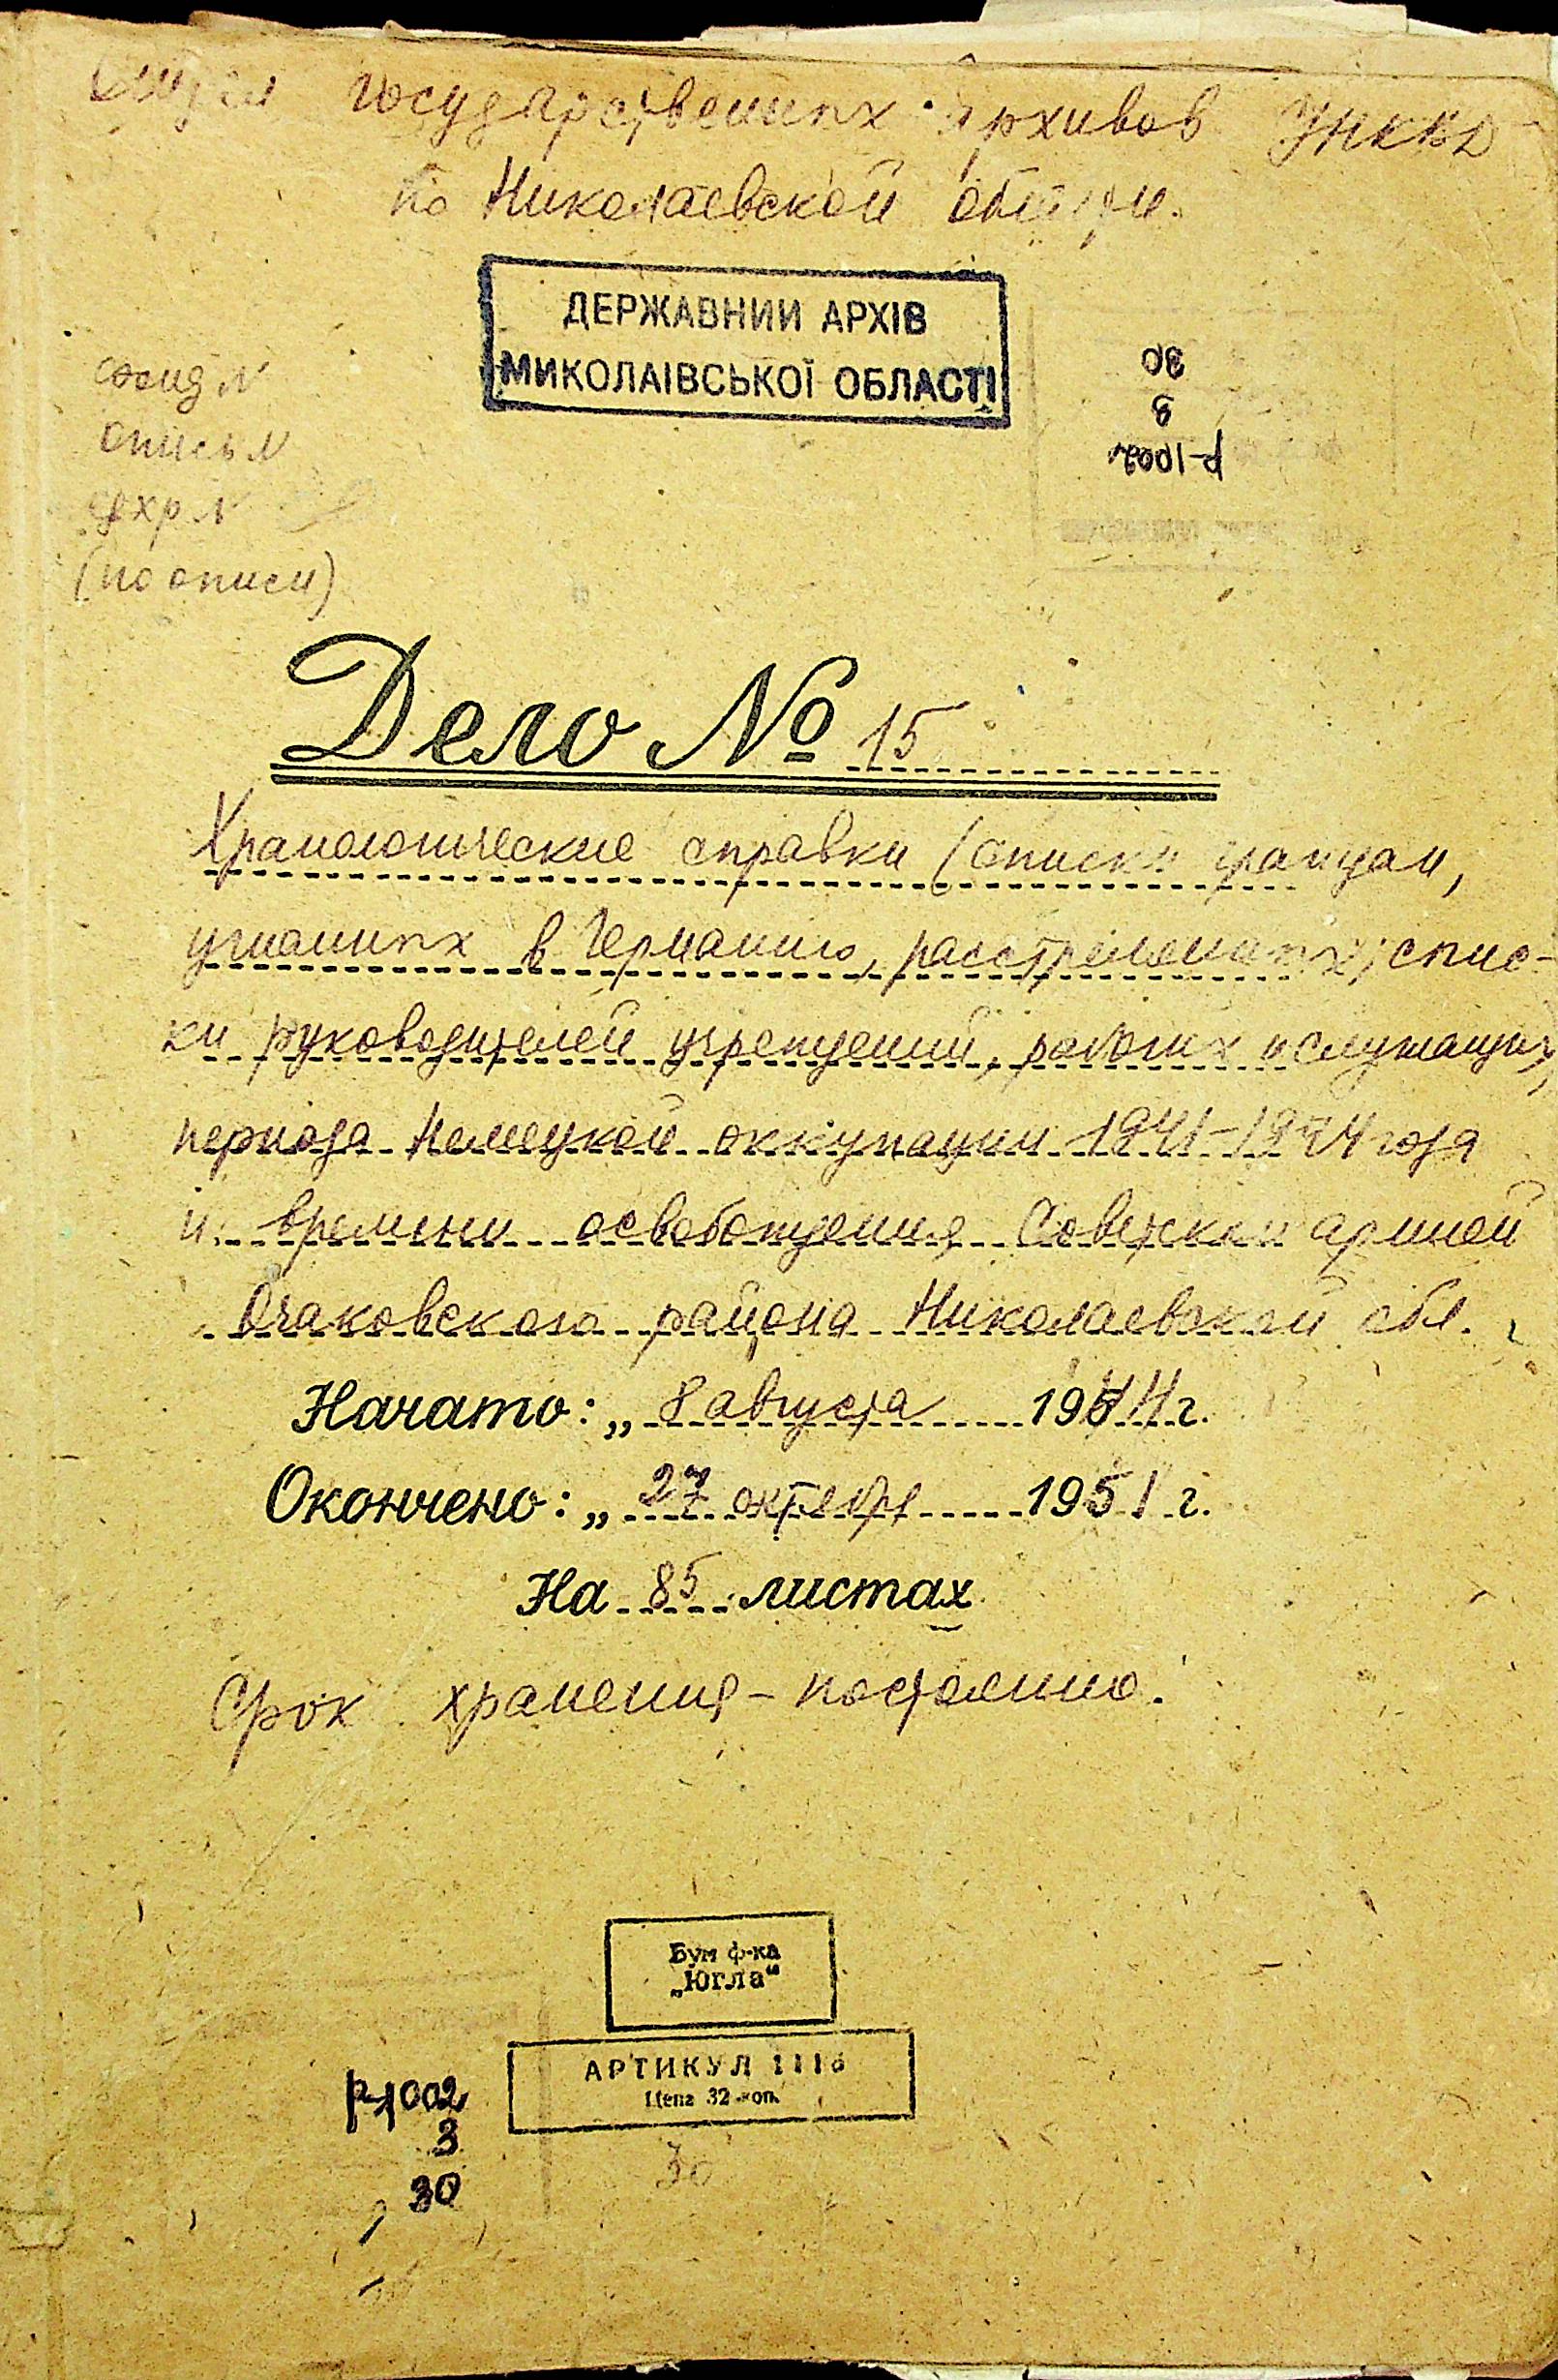 Отдел государственных Архивов УНКВД
по Николаевской области.
ДЕРЖАВНИЙ АРХІВ
МИКОЛАЇВСЬКОЇ ОБЛАСТІ
фонд N
опись N
ед хр N
(по описи)
Р-1002
3
30
Дело № 15
Хранологические справки (списки граждан,
угнанных в Германию, расстрелянных; спис-
ки руководителей учреждений, рабочих и служащих,
периода Немецкой оккупации 1941-1944 года
и времени освобождения Советской армией
Очаковского района Николаевской обл.
Начато: „ 8 августа 1944 г.
Окончено: „ 27 октября 1951 г.
На 85 листах
Срок хранения - постоянно.
Бум ф-ка
„Югла“
АРТИКУЛ 1116
Цена 32 коп.
Р-1002
3
30
30